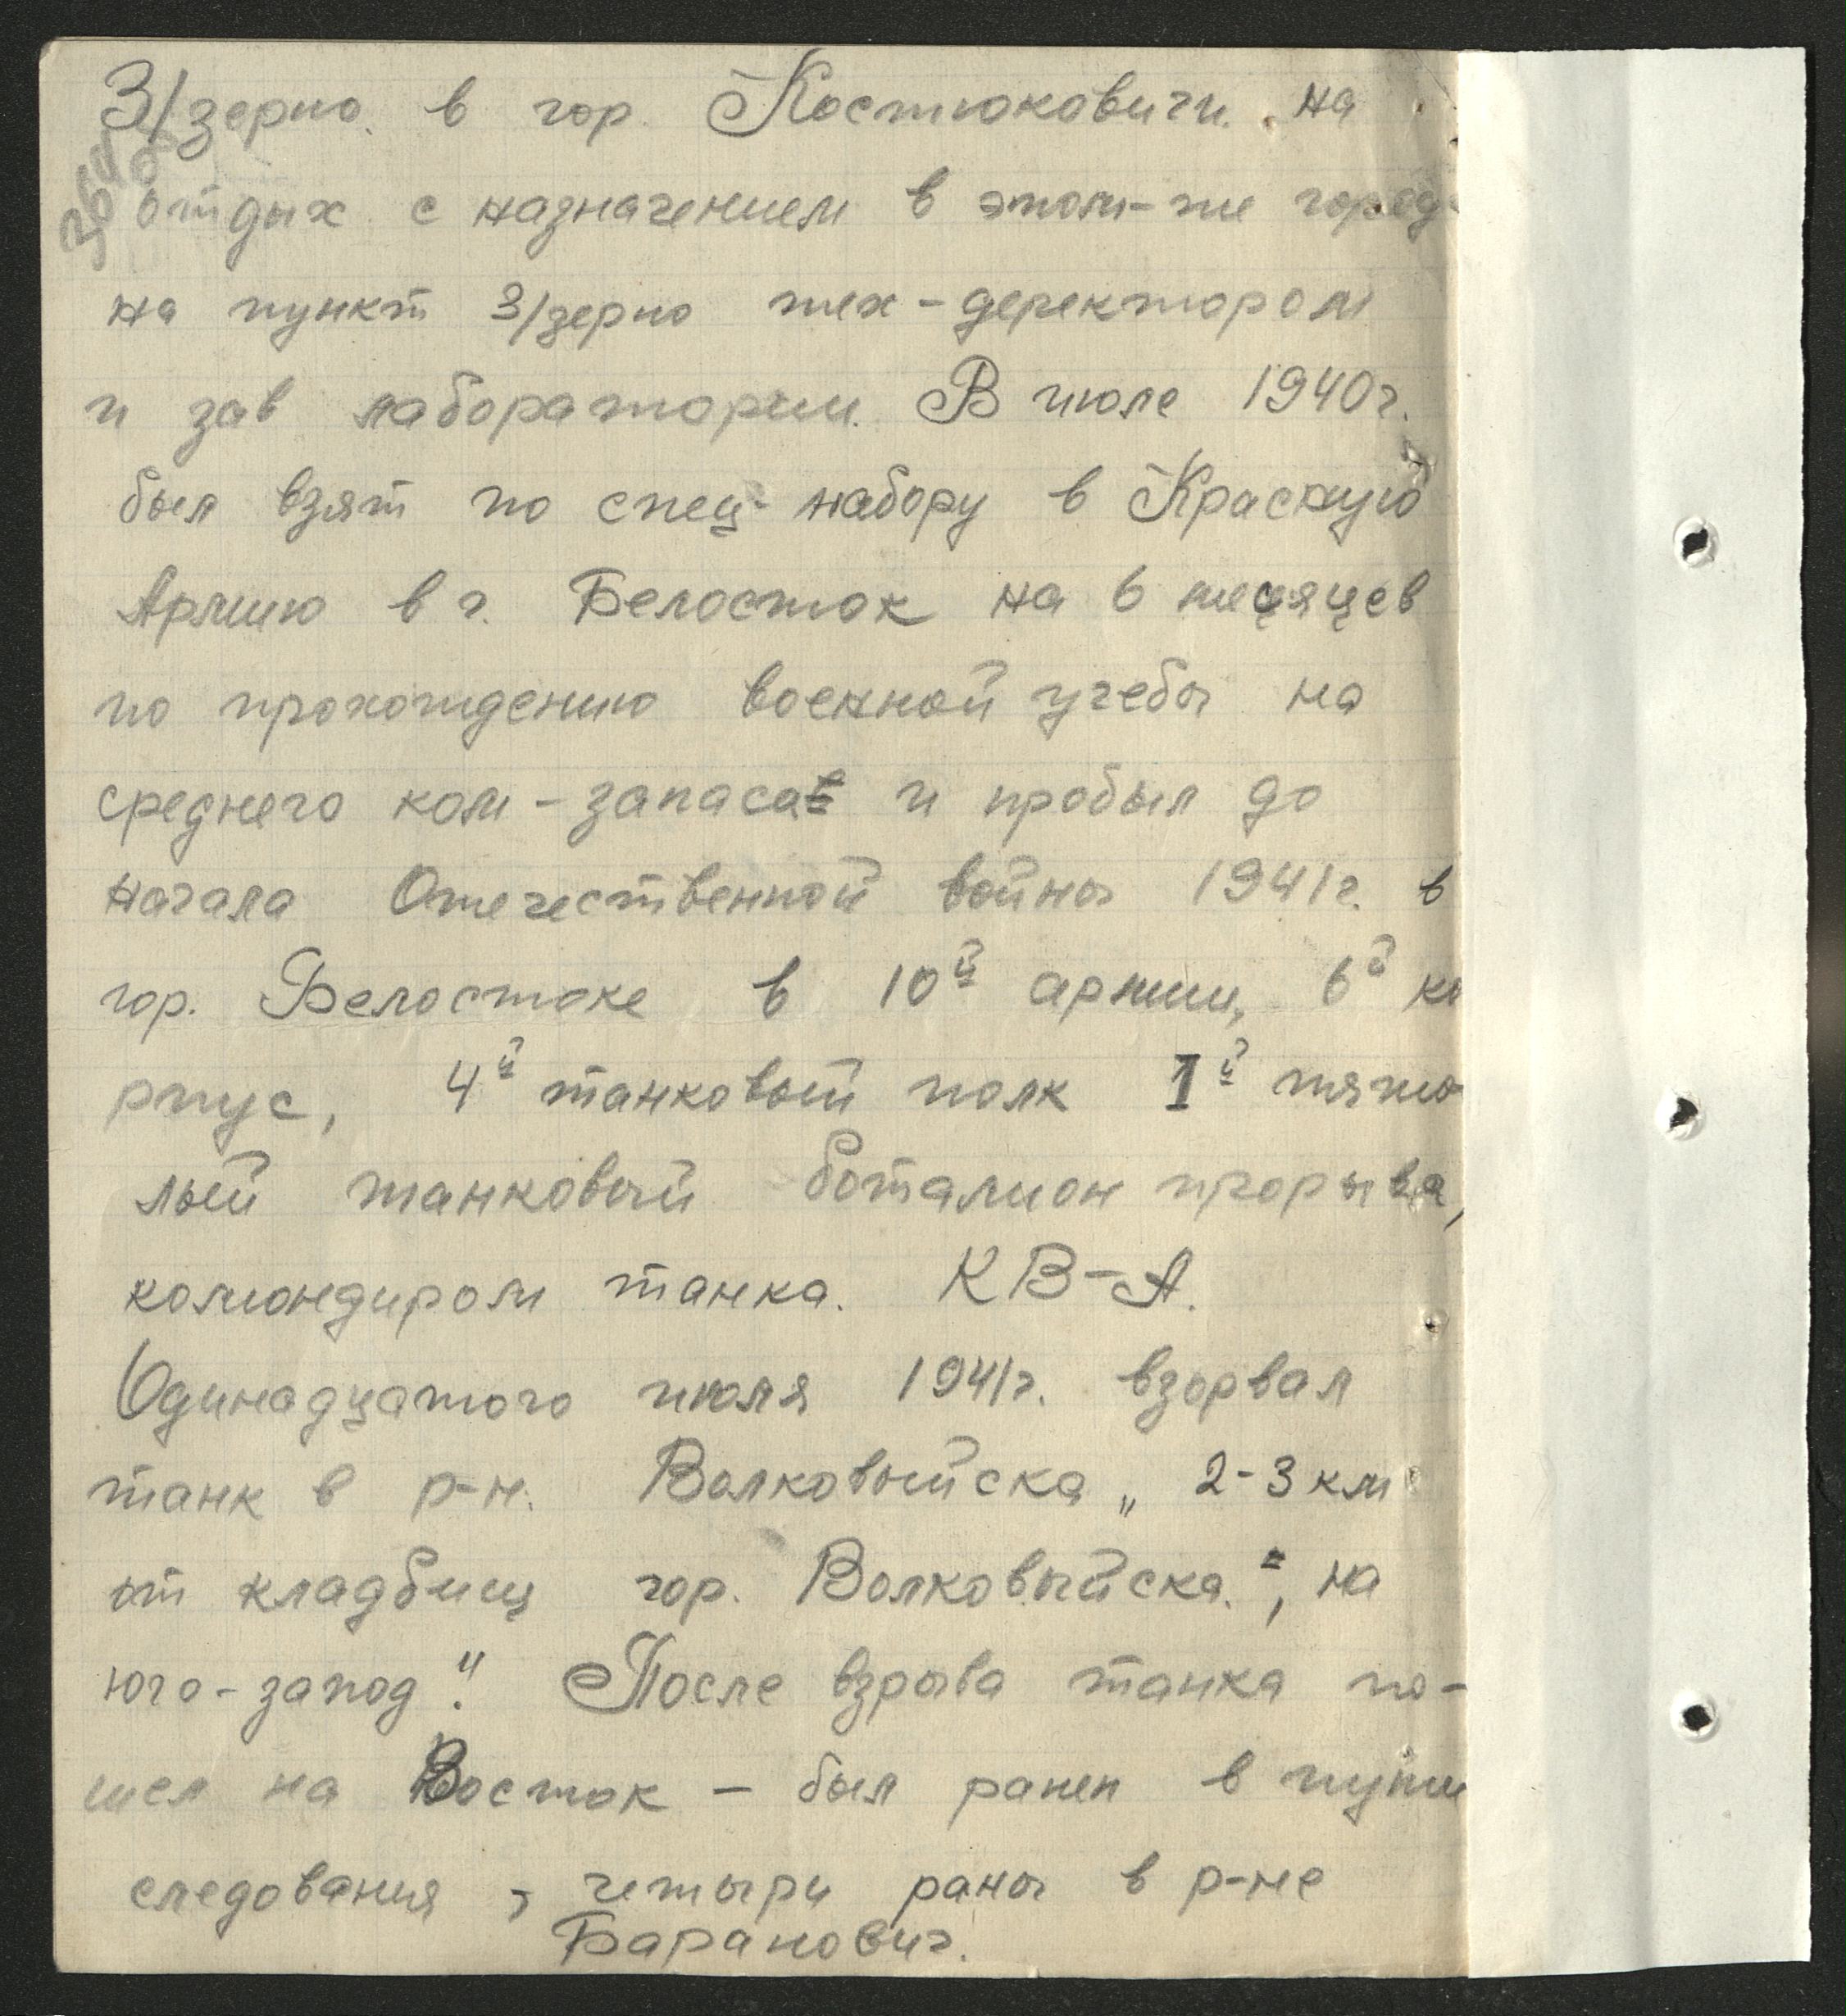 З/зерно в гор. Костюковичи на
отдых с назначением в этом-же город
на пункт З/зерно тех-деректором
и зав лабораторим. В июле 1940г.
был взят по спец-набору в Красную
Армию в г. Белосток на 6 месяцев
по прохождению военной учебы на
среднего ком-запаса и пробыл до
начала Отечественной войны 1941г. в
гор. Белостоке в 10й армии, 6й ко
рпус, 4й танковый полк 1й тяже
лый танковый баталион прорыва,
командиром танка. КВ-А.
Одинадцатого июля 1941г. взорвал
танк в р-н. Волковыйска „2-3 км
от кладбищ гор. Волковыйска", на
юго-запад". После взрыва танка по-
шел на Восток – был ранен в пути
следования, четыри раны в р-не
Баранович.